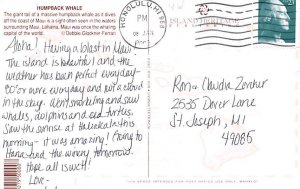 HUMPBACK WHALE
The giant tail of a massive humpback whale as it dives
off the coast of Maui is a sight often seen in the waters
surrounding Maui. Lahaina, Maui was once the whaling
capital of the Pacific.
© Debbie Glickner Ferrari
Aloha! Having a blast in Maui.
The island is beautiful and the
weather has been perfect everyday-
80° or more everyday and not a cloud
in the sky. Went snorkeling and saw
whales, dolphins and sea turtles.
Saw the sunrise at Haleakala this
morning - it was amazing! Going to
Hana and the winery tomorrow.
Hope all is well!
Love:
HONOLULU, HI 968
PM
08 JAN
ISLAND HERITAGE
Claudia Zenker
2535 Dover Lane
St. Joseph, MI
49085